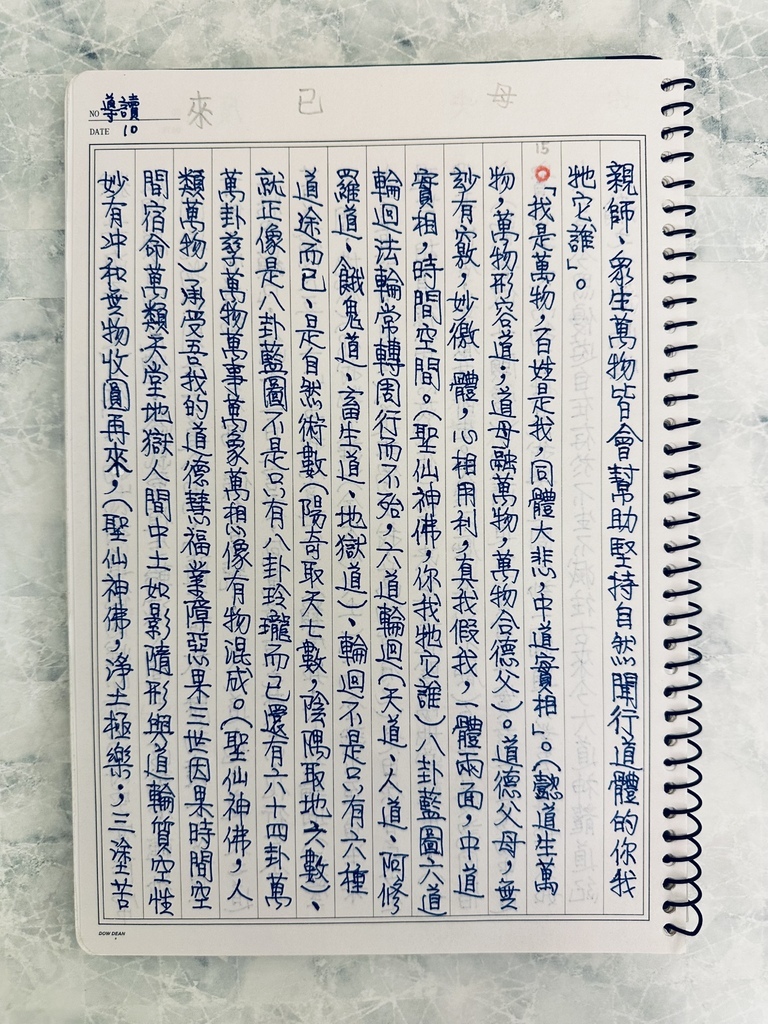 母 已 來
NO 導讀
DATE 10
15
親師、眾生萬物皆會幫助堅持自然聞行道體的你我
牠它誰」。
「我是萬物,百姓是我,同體大悲,中道實相」。(懿道生萬
物,萬物形容道;道母融萬物,萬物合德父)。道德父母,無
妙有竅,妙徼一體,心相用利,真我假我,一體兩面,中道
實相,時間空間。(聖仙神佛,你我牠它誰)八卦藍圖六道
輪迴法輪常轉周行而不殆,六道輪迴(天道、人道、阿修
羅道、餓鬼道、畜生道、地獄道)、輪迴不是只有六種
道途而已、是自然術數(陽奇取天七數,陰隅取地六數)、
就正像是八卦藍圖不是只有八卦玲瓏而已還有六十四卦萬
萬卦孳萬物萬事萬象萬想像有物混成。(聖仙神佛,人
類萬物)承受吾我的道德慧福業障惡果三世因果時間空
間宿命萬類天堂地獄人間中土如影隨形與道輪質空性
妙有沖和無物收圓再來,(聖仙神佛,淨土極樂;三塗苦
DOW DEAN